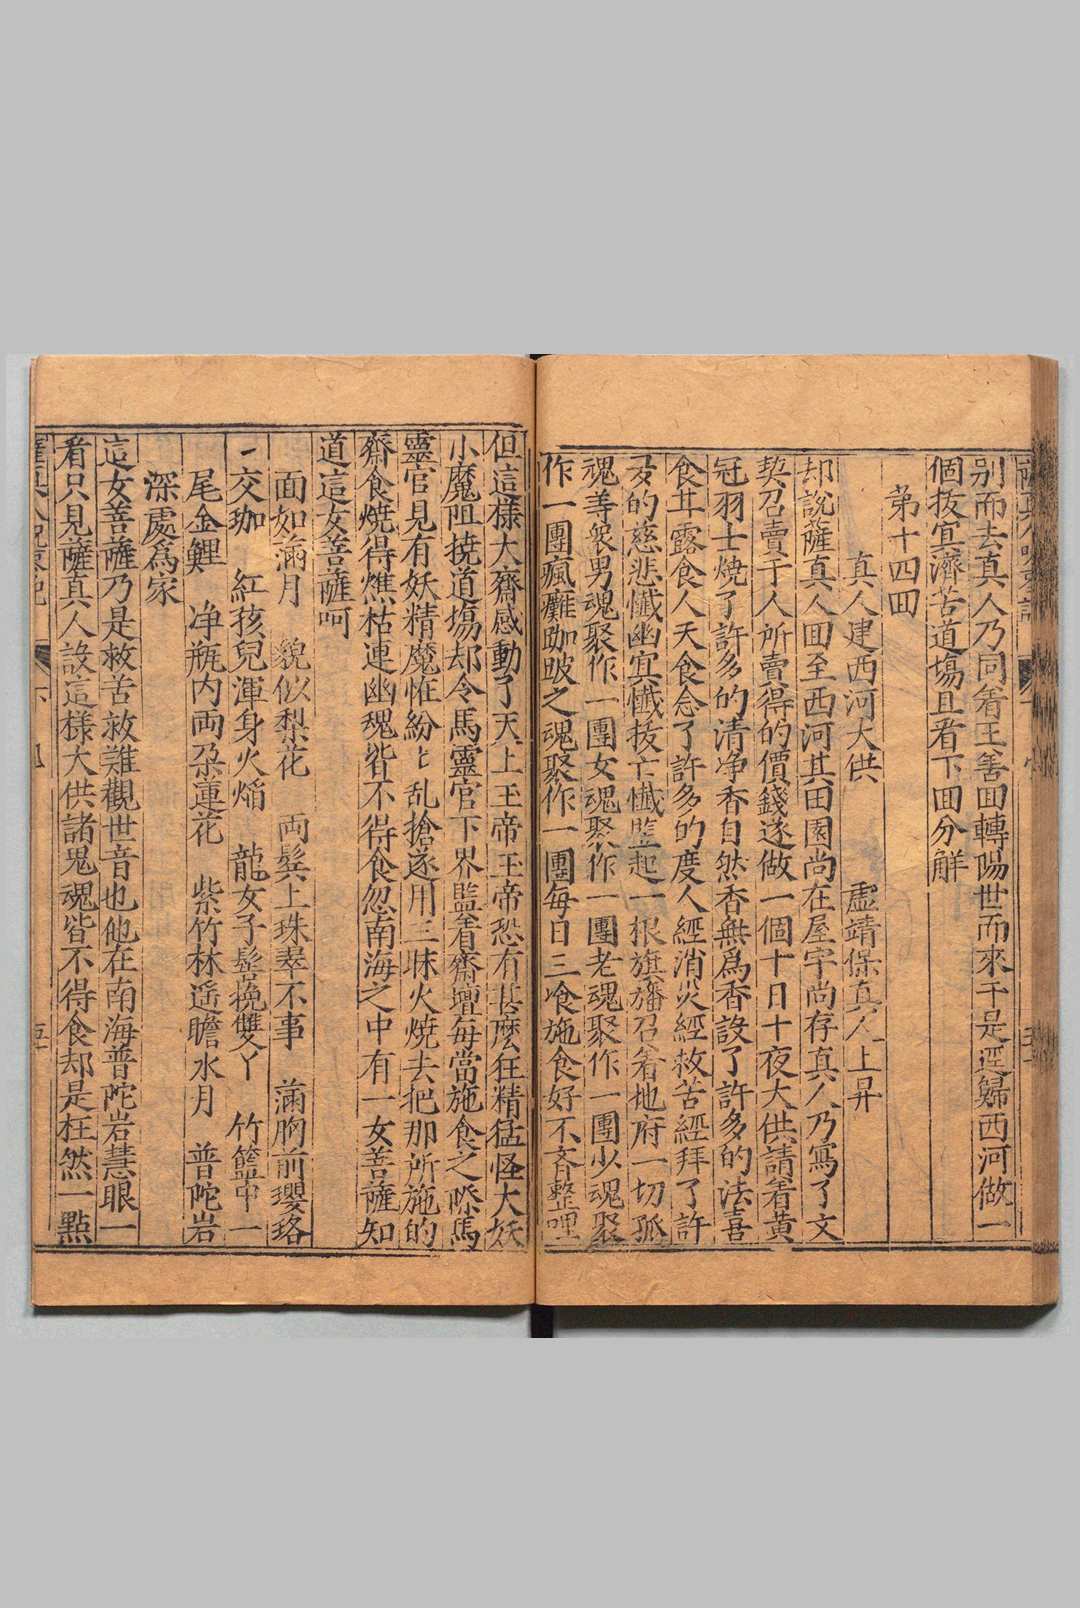 別而去真人乃同着王善回轉陽世而來于是逕歸西河做一
個拔冥濟苦道場且看下回分解
第十四回
真人建西河大供 虛靖保真人上昇
却說薩真人回至西河其田園尚在屋宇尚存真人乃寫了文
契召賣于人所賣得的價錢遂做一個十日十夜大供請着黃
冠羽士燒了許多的清净香自然香無爲香設了許多的法喜
食甘露食人天食念了許多的度人經消災經救苦經拜了許
多的慈悲懺幽冥懺拔亡懺監起一根旗旛召着地府一切孤
魂等衆男魂聚作一團女魂聚作一團老魂聚作一團少魂聚
作一團瘋癱跏跛之魂聚作一團每日三飡施食好不齊整哩
但這樣大齋感動了天上玉帝玉帝恐有甚麽狂精猛怪大妖
小魔阻撓道場却令馬靈官下界監着齋壇每當施食之際馬
靈官見有妖精魔怪紛〻乱搶遂用三昧火燒去把那所施的
齋食燒得燋枯連幽魂皆不得食忽南海之中有一女菩薩知
道這女菩薩呵
面如滿月 貌似梨花 両鬂上珠翠不事 滿胸前瓔珞
交珈 紅孩兒渾身火熖 龍女子髻挽雙丫 竹籃中一
尾金鯉 净瓶内両朶蓮花 紫竹林遥瞻水月 普陀岩
深處為家
這女菩薩乃是救苦救難觀世音也他在南海普陀岩慧眼一
看只見薩真人設這樣大供諸鬼魂皆不得食却是枉然一點